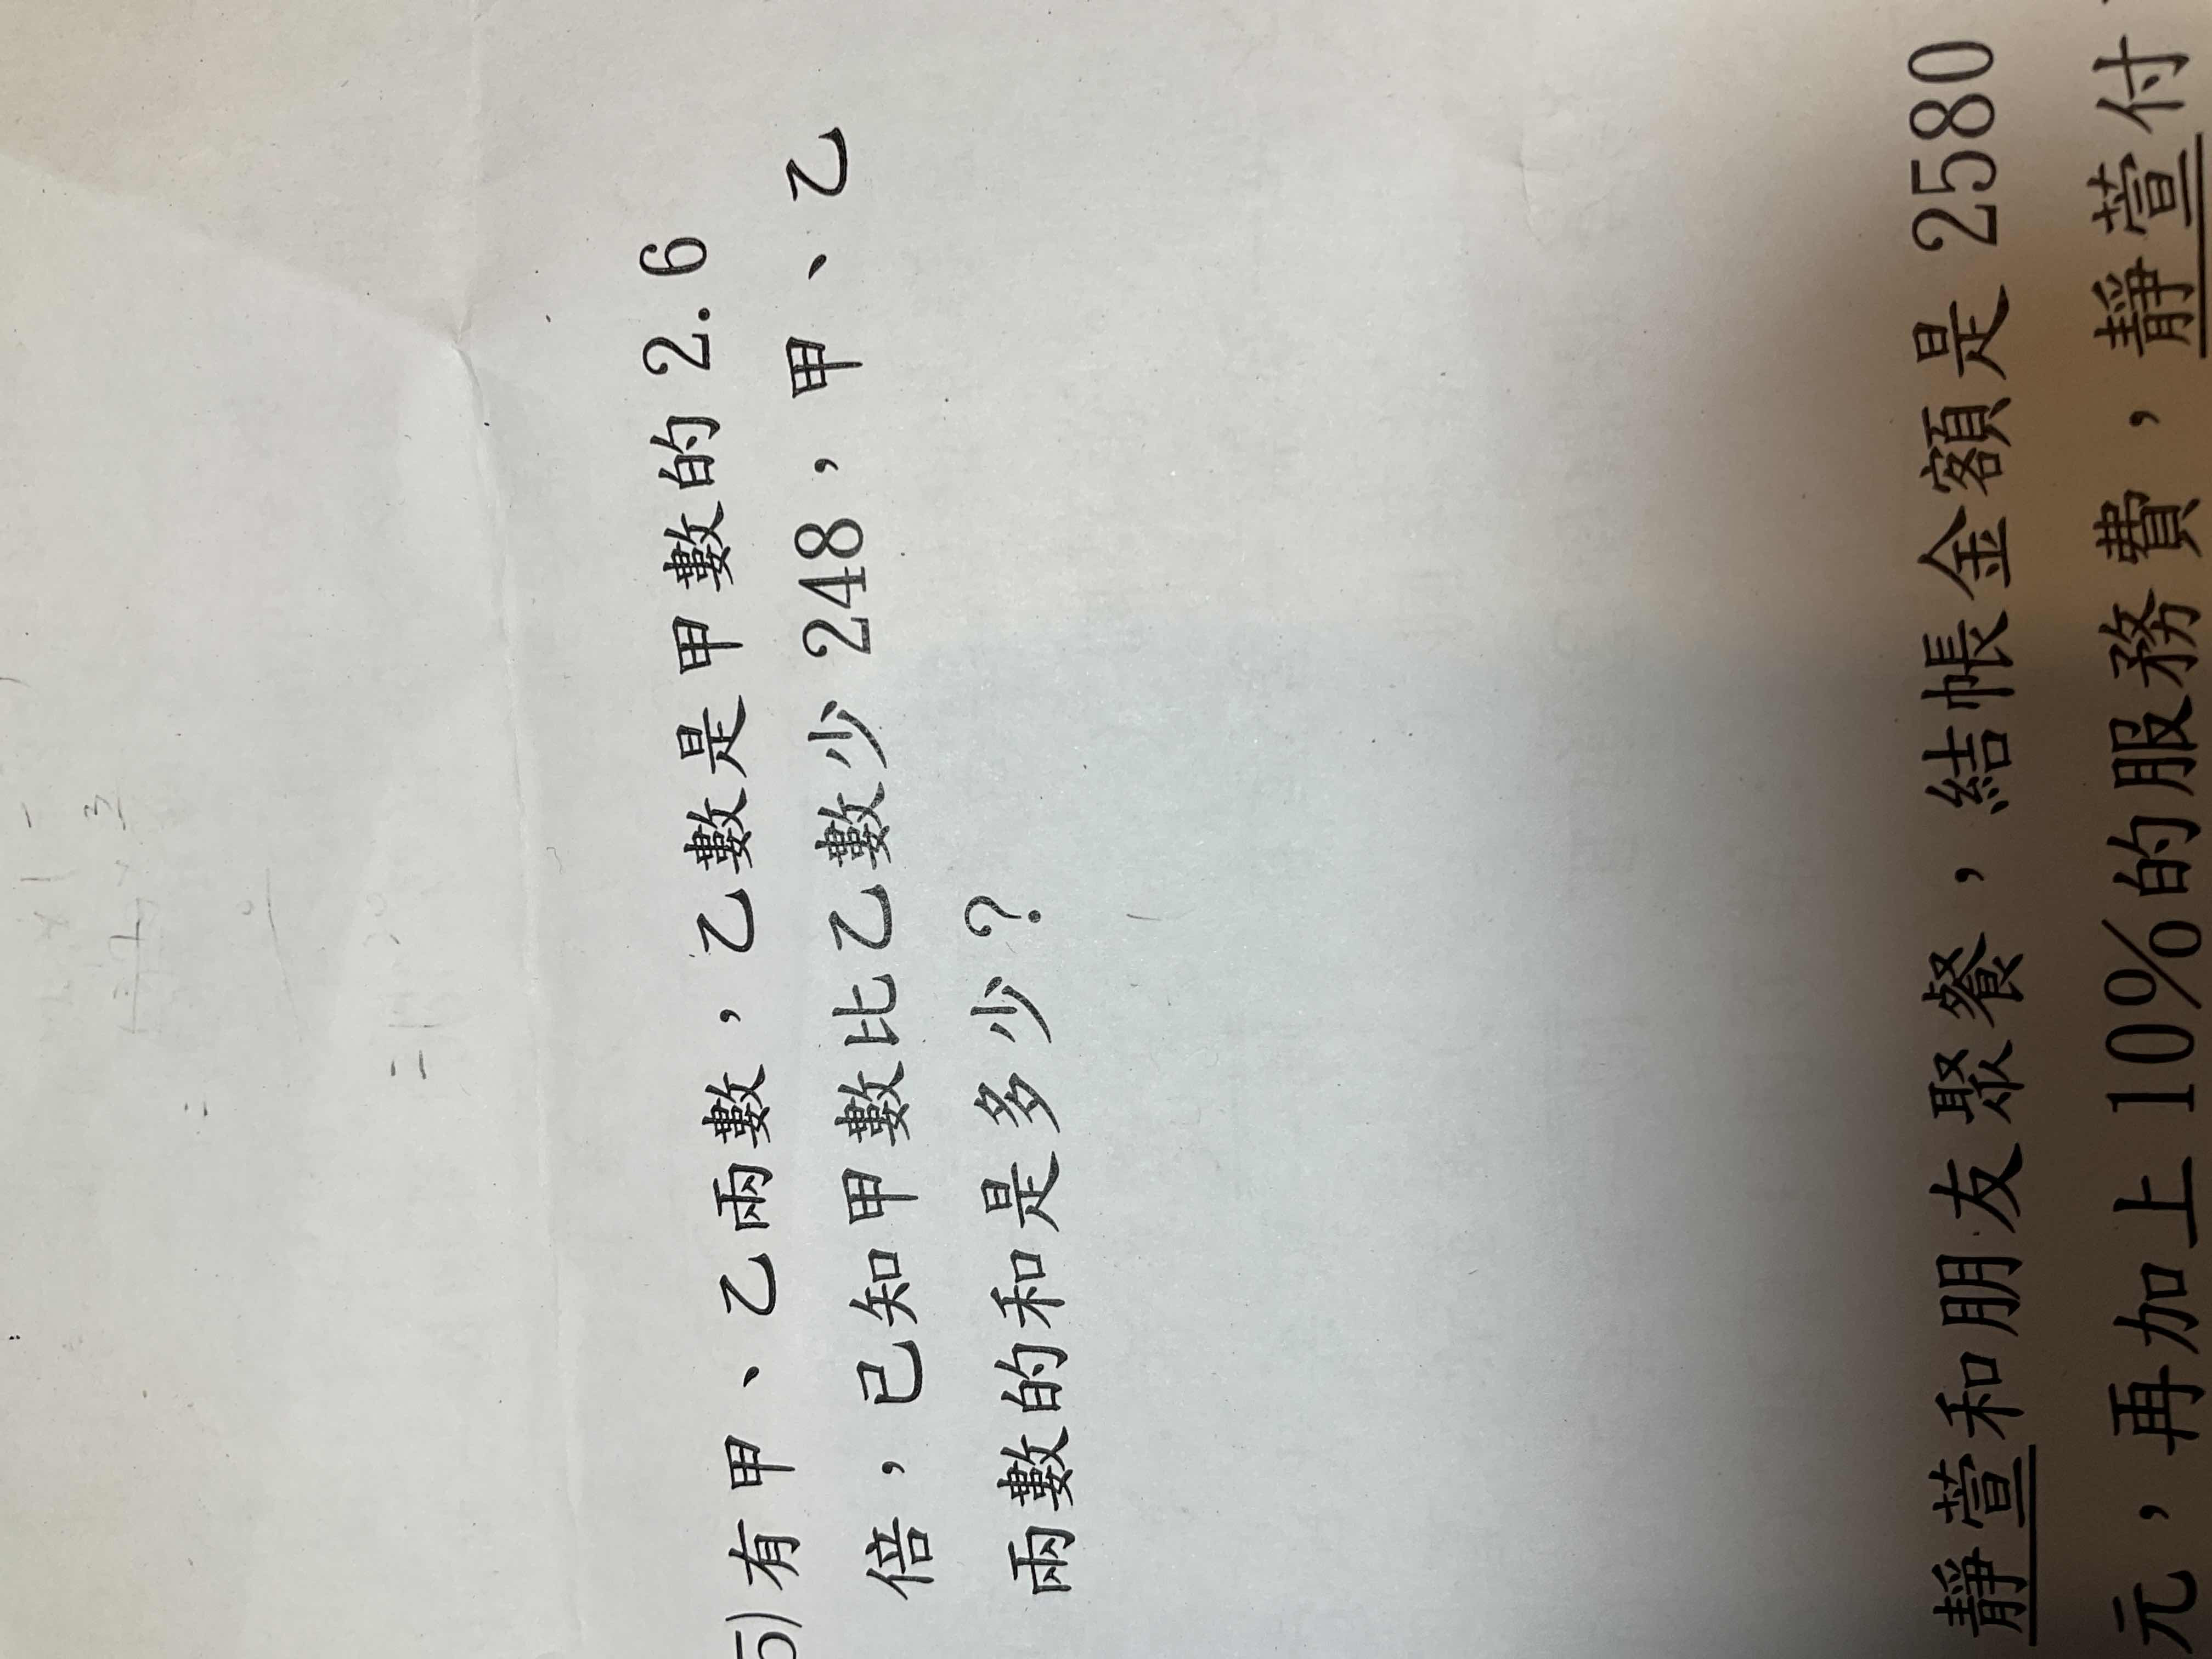 5)有甲、乙兩數，乙數是甲數的 2.6
倍，已知甲數比乙數少 248，甲、乙
兩數的和是多少？
靜萱和朋友聚餐，結帳金額是 2580
元，再加上 10%的服務費，靜萱付